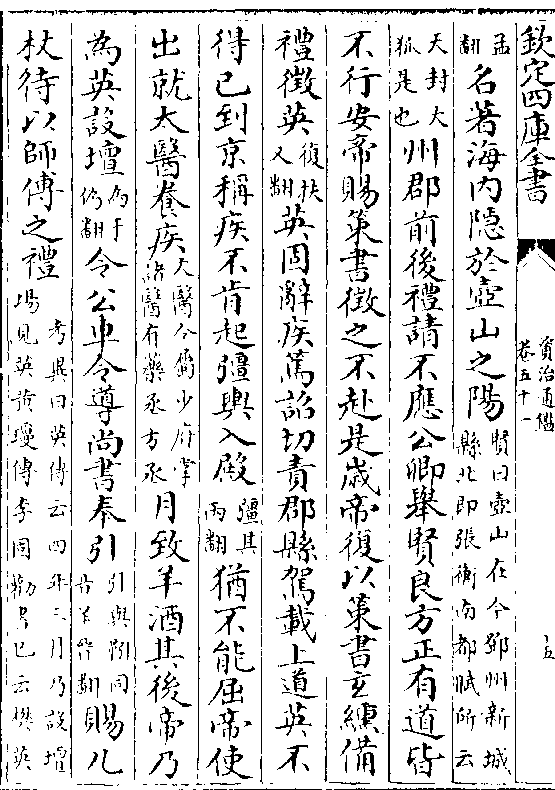 欽定四庫全書
資治通鑑
卷五十一
十五
孟翻名著海内隠於壺山之陽賢曰壺山在今鄧州新城縣北即張衡南都賦所云
天封大狐是也州郡前後禮請不應公卿舉賢良方正有道皆
不行安帝賜策書徴之不赴是歳帝復以策書玄纁備
禮徴英復扶又翻英固辭疾篤詔切責郡縣駕載上道英不
得已到京稱疾不肯起彊輿入殿彊其兩翻猶不能屈帝使
出就太醫養疾太醫令屬少府掌諸醫有藥丞方丞月致羊酒其後帝乃
為英設壇為于偽翻令公車令導尚書奉引引與靷同音羊晉翻賜几
杖待以師傅之禮考異曰英傳云四年三月乃設壇場見英黄瓊傳李固勸書已云樊英